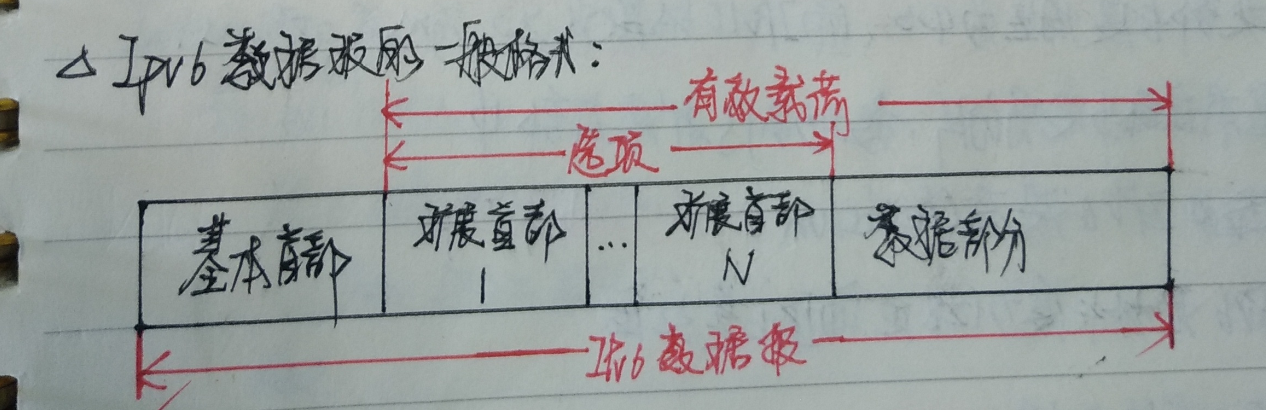 △ IPv6 数据报的一般格式:
有效载荷
选项
基本首部
扩展首部
1
...
扩展首部
N
数据部分
IPv6 数据报